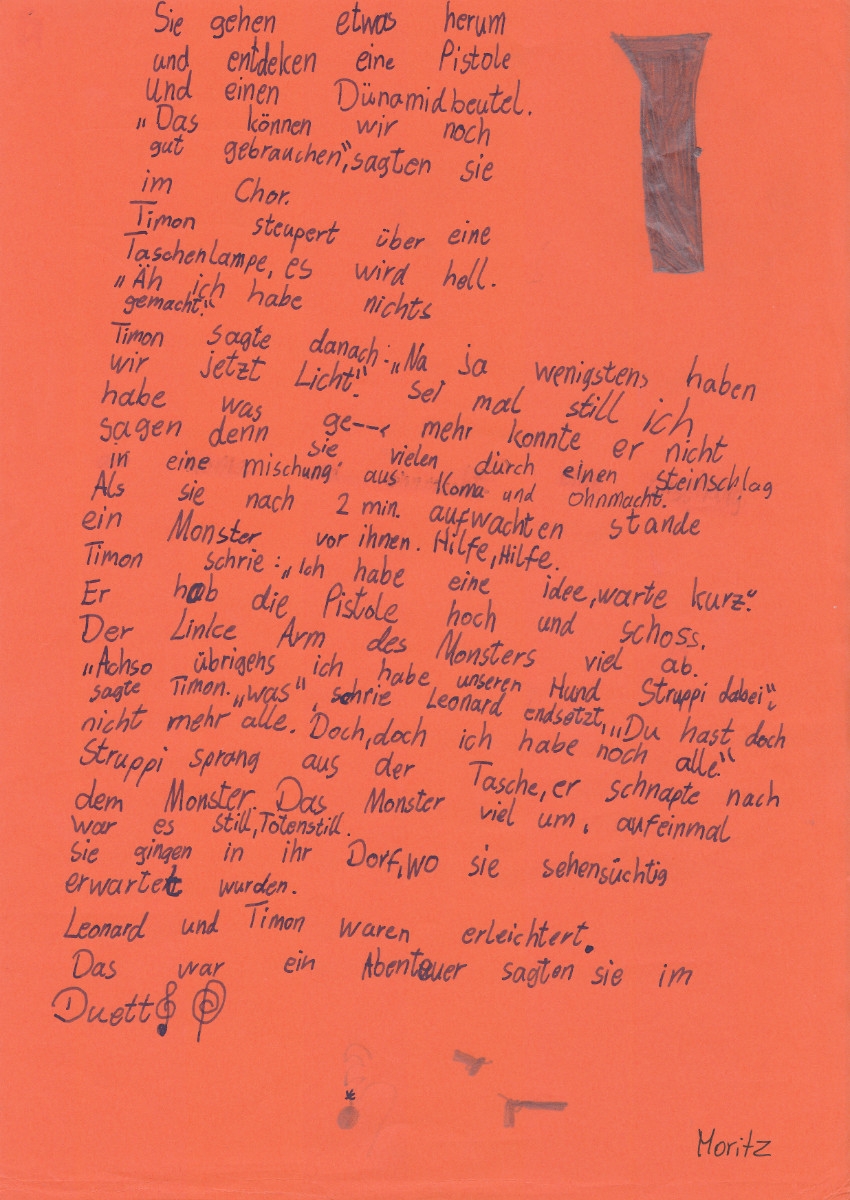 Sie gehen etwas herum
und entdeken eine Pistole
Und einen Dünamidbeutel.
„Das können wir noch
gut gebrauchen“, sagten sie
im Chor.
Timon steupert über eine
Taschenlampe, es wird hell.
„Äh ich habe nichts
gemacht.“
Timon sagte danach: „Na ja wenigstens haben
wir jetzt Licht“. Sei mal still ich
habe was ge---. mehr konnte er nicht
sagen denn sie vielen durch einen steinschlag
in eine mischung aus Koma und Ohnmacht.
Als sie nach 2 min. aufwachten stande
ein Monster vor ihnen. Hilfe, Hilfe.
Timon schrie: „Ich habe eine idee, warte kurz“.
Er hob die Pistole hoch und schoss.
Der Linke Arm des Monsters viel ab.
„Achso übrigens ich habe unseren Hund Struppi dabei“,
sagte Timon. „was“, schrie Leonard endsetzt, „Du hast doch
nicht mehr alle. Doch, doch ich habe noch alle.“
Struppi sprang aus der Tasche, er schnapte nach
dem Monster. Das Monster viel um. aufeinmal
war es still, Totenstill.
Sie gingen in ihr Dorf, wo sie sehensüchtig
erwartet wurden.
Leonard und Timon waren erleichtert.
Das war ein Abenteuer sagten sie im
Duett
Moritz